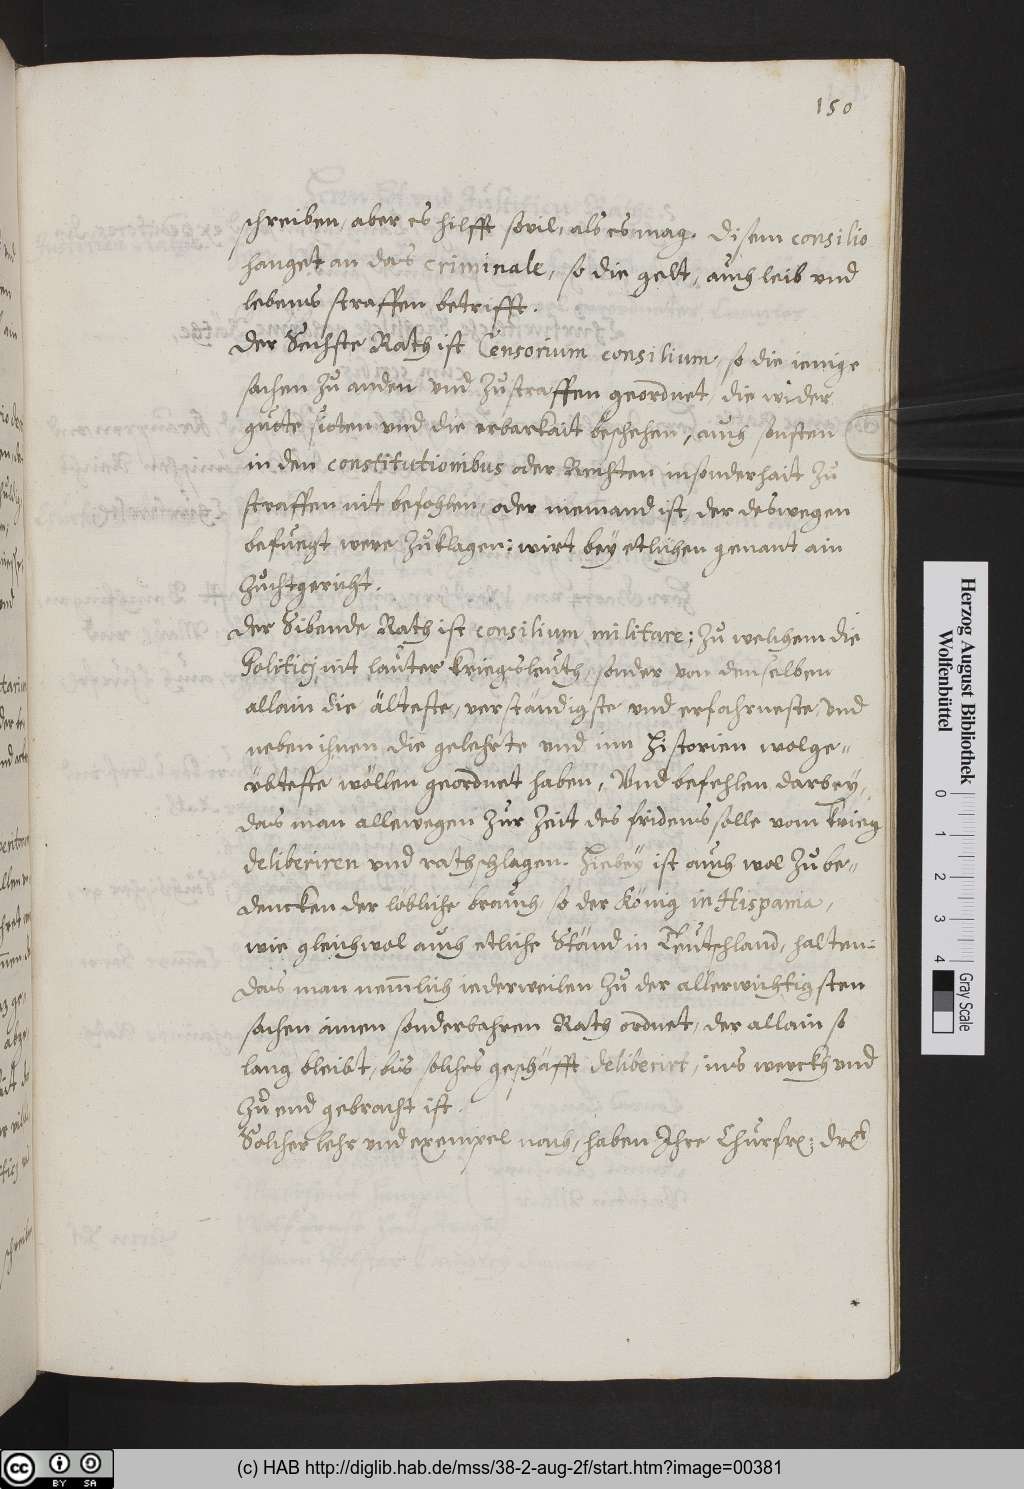 150
schreiben, aber es hilfft sovil, als es mag. Disem consilio
hanget an das criminale, so die gelt, auch leib und
lebens straffen betrifft.
Der Sechste Rath ist Censorium consilium, so die ienige
sachen zu anden und zustraffen geordnet, die wider
guote sitten und die erbarkait beschehen, auch sonsten
in den constitutionibus oder Rechten insonderhait zu
straffen nit befohlen, oder niemand ist, der deswegen
befuegt were zuklagen: wirt bey etlichen genant ain
Zuchtgericht.
Der Sibende Rath ist consilium militare; zu welchem die
Politici nit lauter kriegsleuth, sonder von denselben
allain die älteste, verständigste und erfahrneste, und
neben ihnen die gelehrte und inn Historien wolge-
übteste wöllen geordnet haben, Und befehlen darbey,
das man allewegen zur Zeit des fridens solle vom krieg
deliberiren und rathschlagen. Hiebey ist auch wol zu be-
dencken der löbliche brauch, so der König in Hispania,
wie gleichwol auch etliche Ständ in Teutschland, halten:
das man nemlich iederweilen zu der allerwichtigsten
sachen ainen sonderbahren Rath ordnet, der allain so
lang bleibt, bis solches geschäfft deliberirt, ins werckh und
zu end gebracht ist.
Solcher lehr und exempel nach, haben Ihre Churfr: Drt
Herzog August Bibliothek
Wolfenbüttel
0 1 2 3 4
Gray Scale
cc BY SA
(c) HAB http://diglib.hab.de/mss/38-2-aug-2f/start.htm?image=00381